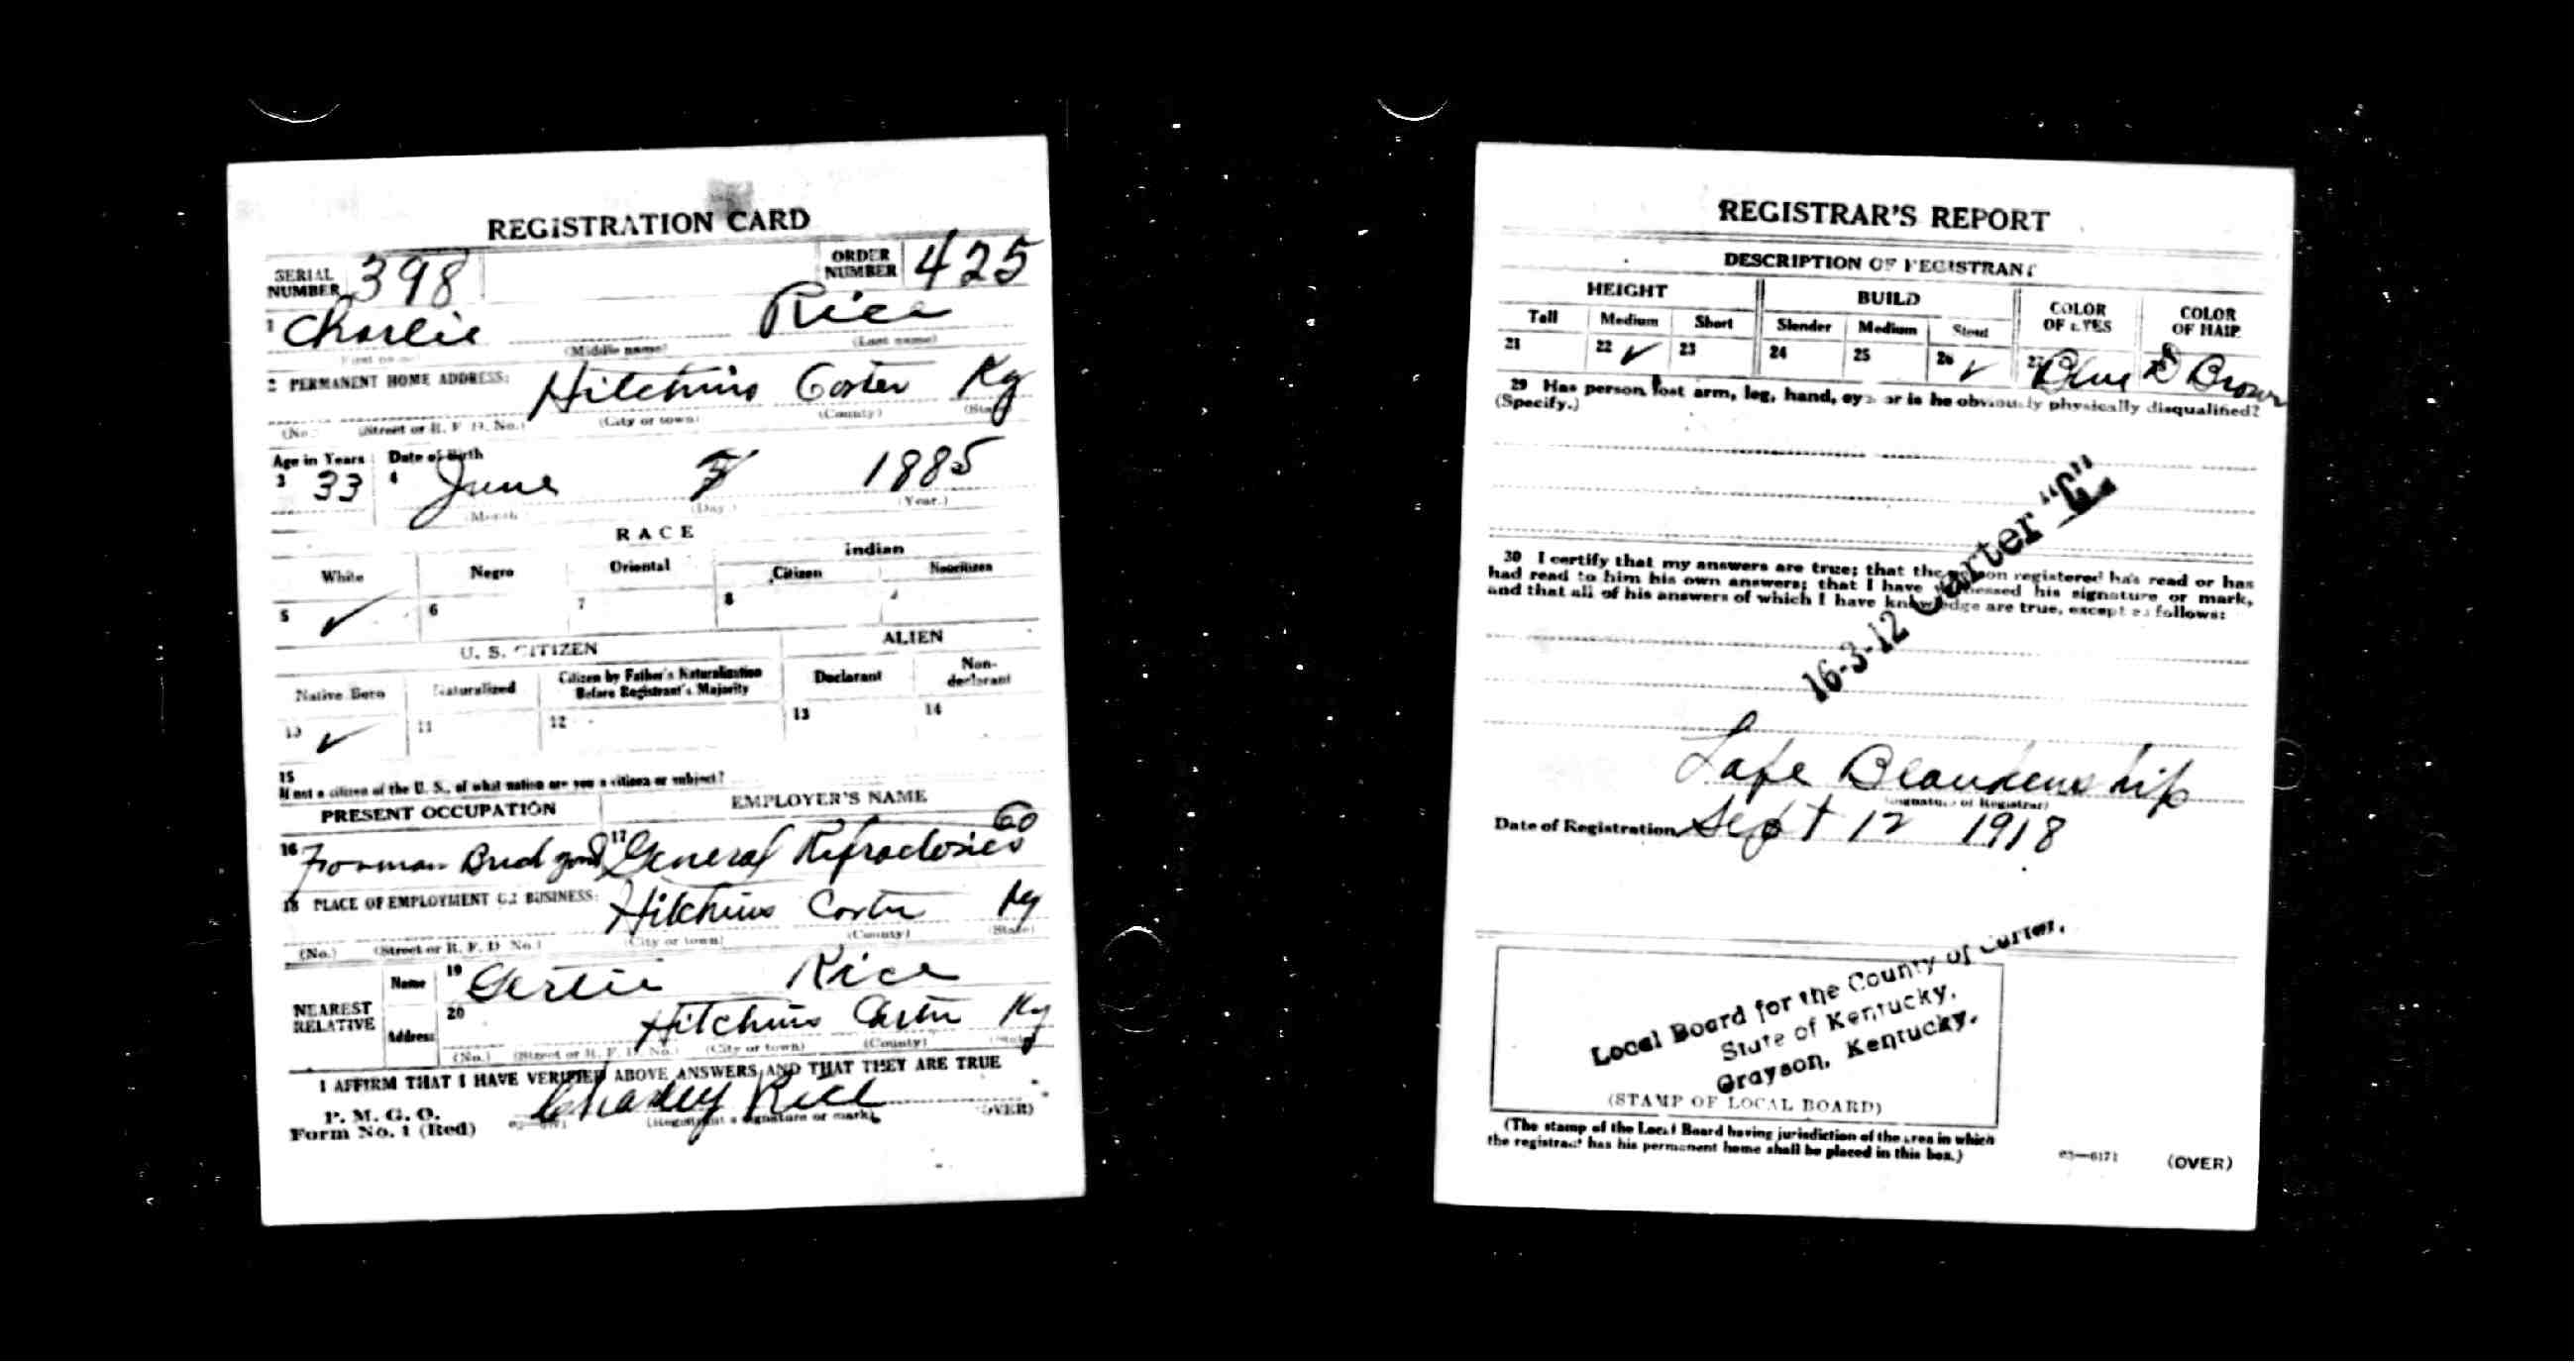 REGISTRATION CARD
SERIAL NUMBER 398 ORDER NUMBER 425
1 Charlie Rice
(First name) (Middle name) (Last name)
2 PERMANENT HOME ADDRESS: Hitchins Carter Ky
(No.) (Street or R. F. D. No.) (City or town) (County) (State)
Age in Years Date of Birth
3 33 4 June 1885
(Month) (Day) (Year.)
RACE
White Negro Oriental Indian
Citizen Noncitizen
5 ✓ 6 7 8
U. S. CITIZEN ALIEN
Native Born Naturalized Citizen by Father's Naturalization Before Registrant's Majority Declarant Non-declarant
10 ✓ 11 12 13 14
15
If not a citizen of the U. S., of what nation are you a citizen or subject?
PRESENT OCCUPATION EMPLOYER'S NAME
16 Forman 17 General Refractories Co
18 PLACE OF EMPLOYMENT OR BUSINESS: Hitchins Carter Ky
(No.) (Street or R. F. D. No.) (City or town) (County) (State)
NEAREST RELATIVE Name 19 Gertie Rice
Address 20 Hitchins Carter Ky
(No.) (Street or R. F. D. No.) (City or town) (County) (State)
I AFFIRM THAT I HAVE VERIFIED ABOVE ANSWERS AND THAT THEY ARE TRUE
P. M. G. O.
Form No. 1 (Red) Charley Rice
(Registrant's signature or mark) (OVER)
REGISTRAR'S REPORT
DESCRIPTION OF REGISTRANT
HEIGHT BUILD COLOR OF EYES COLOR OF HAIR
Tall Medium Short Slender Medium Stout
21 22 ✓ 23 24 25 26 ✓ 27 Blue D Brown
29 Has person lost arm, leg, hand, eye, or is he obviously physically disqualified?
(Specify.)
30 I certify that my answers are true; that the person registered has read or has
had read to him his own answers; that I have witnessed his signature or mark,
and that all of his answers of which I have knowledge are true, except as follows:
16-3-12 Carter "C"
Lafe Blankenship
(Signature of Registrar)
Date of Registration Sept 12 1918
Local Board for the County of Carter,
State of Kentucky,
Grayson, Kentucky.
(STAMP OF LOCAL BOARD)
(The stamp of the Local Board having jurisdiction of the area in which
the registrant has his permanent home shall be placed in this box.)
03—6171 (OVER)